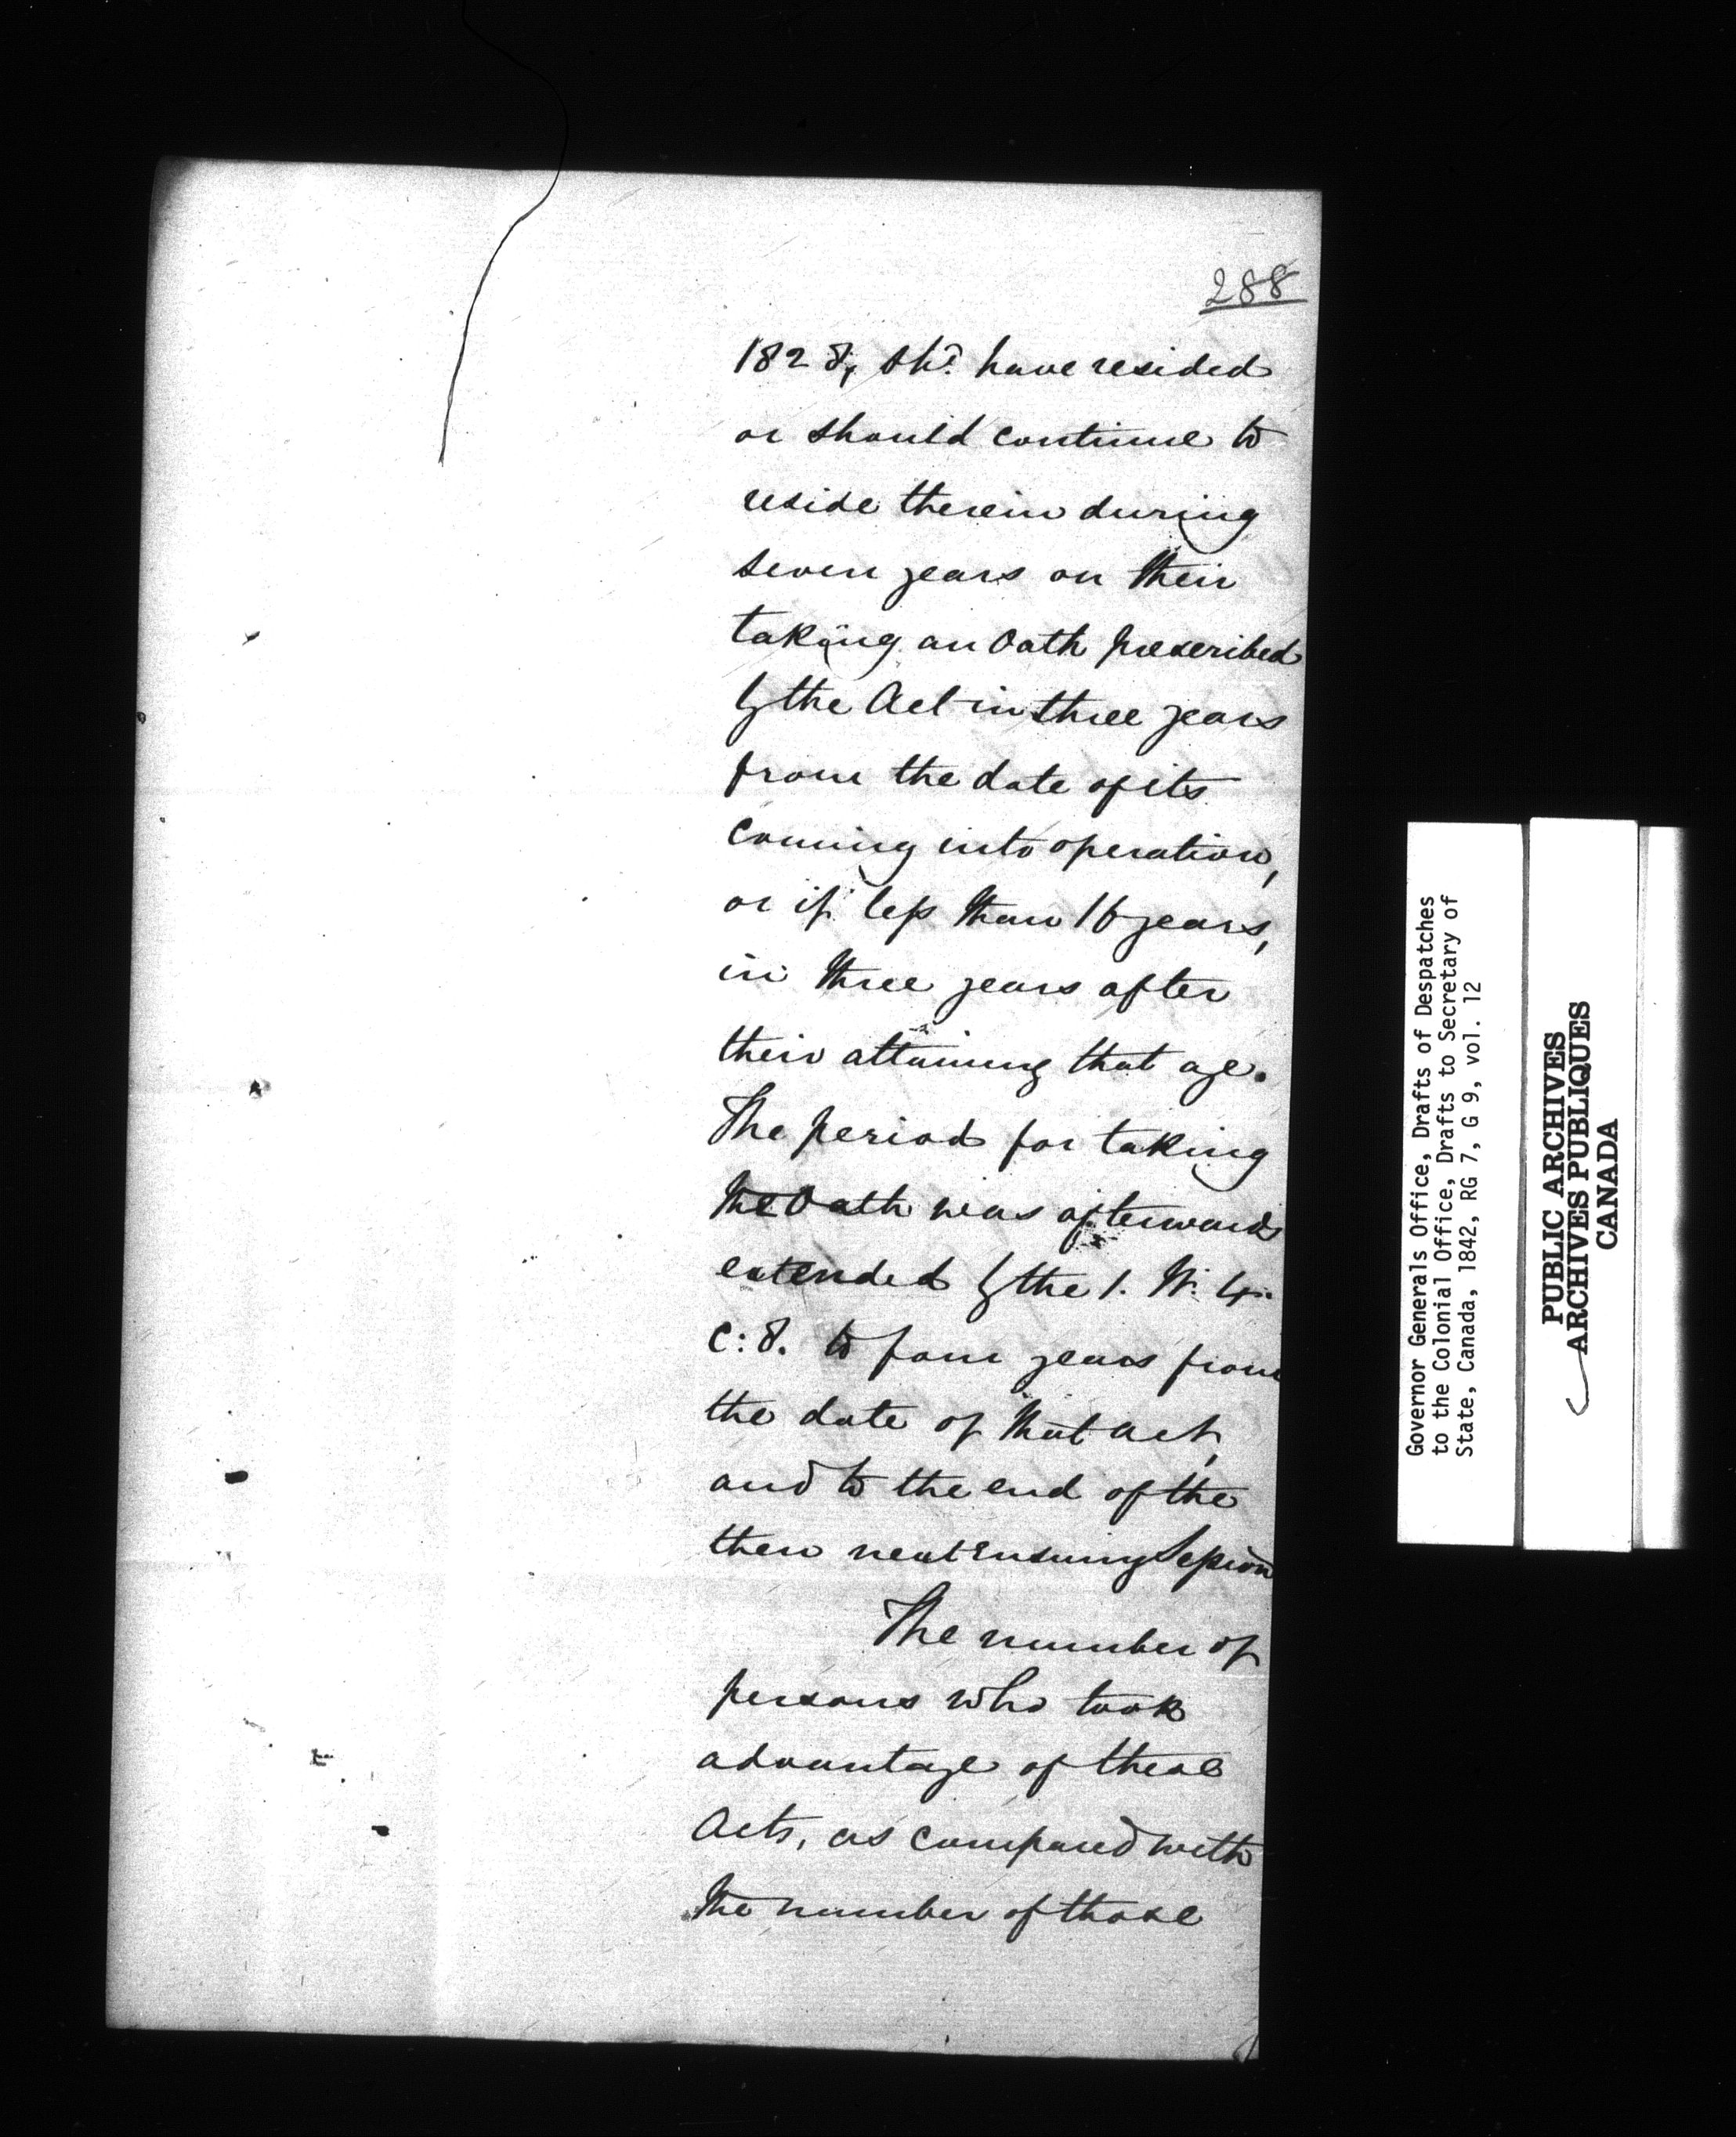 288
1828, shd. have resided
or should continue to
reside therein during
seven years on their
taking an Oath prescribed
by the Act in three years
from the date of its
coming into operation,
or if less than 16 years,
in three years after
their attaining that age.
The period for taking
the Oath was afterwards
extended by the 1. W. 4.
C: 8. to four years from
the date of that Act,
and to the end of the
then next ensuing Session
The number of
persons who took
advantage of these
Acts, as compared with
the number of those
Governor Generals Office, Drafts of Despatches
to the Colonial Office, Drafts to Secretary of
State, Canada, 1842, RG 7, G 9, vol. 12
PUBLIC ARCHIVES
ARCHIVES PUBLIQUES
CANADA